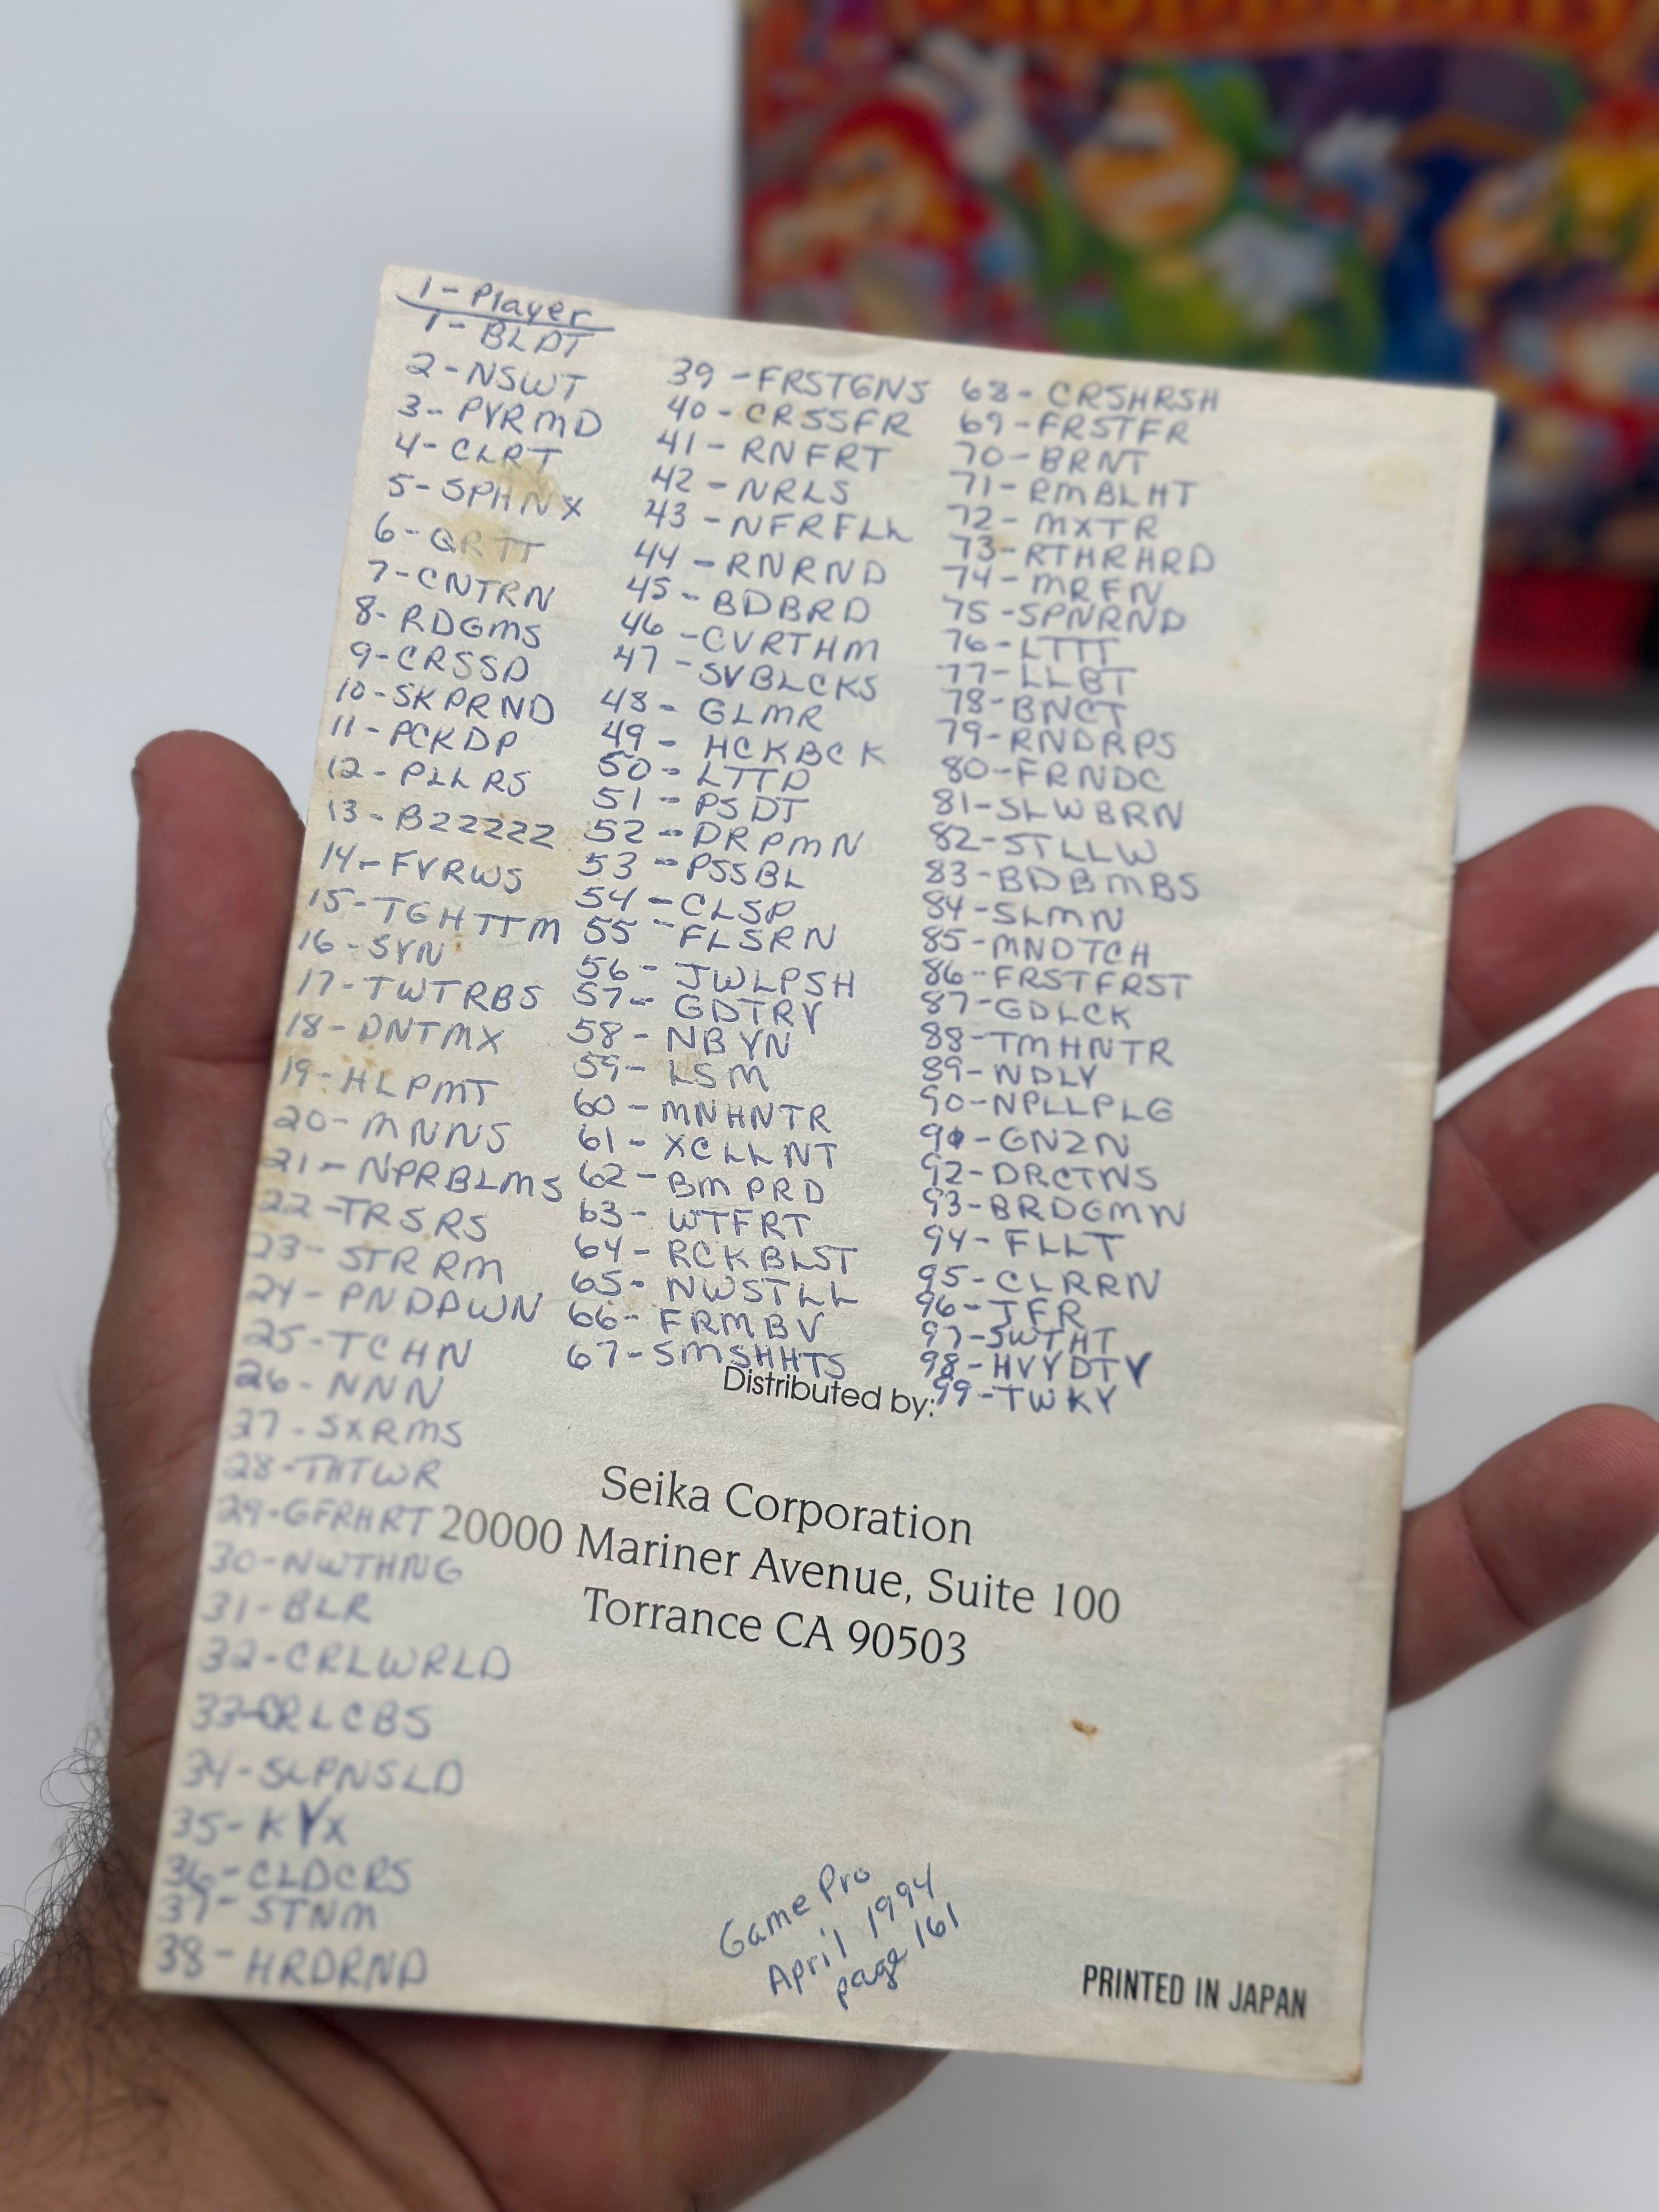 1-Player
1-BLDT
2-NSWT
3-PYRMD
4-CLRT
5-SPHNX
6-QRTT
7-CNTRN
8-RDGMS
9-CRSSD
10-SKPRND
11-PCKDP
12-PLLRS
13-BZZZZZ
14-FVRWS
15-TGHTTM
16-SYN
17-TWTRBS
18-DNTMX
19-HLPMT
20-MNNS
21-NPRBLMS
22-TRSRS
23-STRRM
24-PNDPWN
25-TCHN
26-NNN
27-SXRMS
28-THTWR
29-GFRHRT
30-NWTHNG
31-BLR
32-CRLWRLD
33-CRLCBS
34-SLPNSLD
35-KYX
36-CLDCRS
37-STNM
38-HRDRND
39-FRSTGNS
40-CRSSFR
41-RNFRT
42-NRLS
43-NFRFLL
44-RNRND
45-BDBRD
46-CVRTHM
47-SVBLCKS
48-GLMR
49-HCKBCK
50-LTTD
51-PSDT
52-DRPMN
53-PSSBL
54-CLSP
55-FLSRN
56-JWLPSH
57-GDTRY
58-NBYN
59-LSM
60-MNHNTR
61-XCLLNT
62-BMPRD
63-WTFRT
64-RCKBLST
65-NWSTLL
66-FRMBV
67-SMSHHTS
68-CRSHRSH
69-FRSTFR
70-BRNT
71-RMBLHT
72-MXTR
73-RTHRHRD
74-MRFN
75-SPNRND
76-LTTT
77-LLBT
78-BNCT
79-RNDRPS
80-FRNDC
81-SLWBRN
82-STLLW
83-BDBMBS
84-SLMN
85-MNDTCH
86-FRSTFRST
87-GDLCK
88-TMHNTR
89-NDLY
90-NPLLPLG
91-GNZN
92-DRCTNS
93-BRDGMN
94-FLLT
95-CLRRN
96-JFR
97-SWTHT
98-HVYDTY
99-TWKY
Distributed by:
Seika Corporation
20000 Mariner Avenue, Suite 100
Torrance CA 90503
Game Pro
April 1994
page 161
PRINTED IN JAPAN